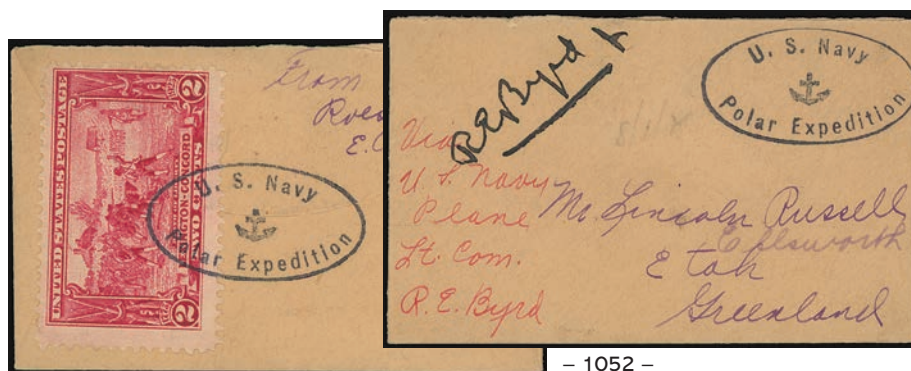 From
2
UNITED STATES POSTAGE
LEXINGTON-CONCORD
2
U. S. Navy
Polar Expedition
R.E.Byrd
U. S. Navy
Polar Expedition
Via
U. S. Navy
Plane
Lt. Com.
R. E. Byrd
Mr Lincoln Russell
Ellsworth
Etah
Greenland
– 1052 –